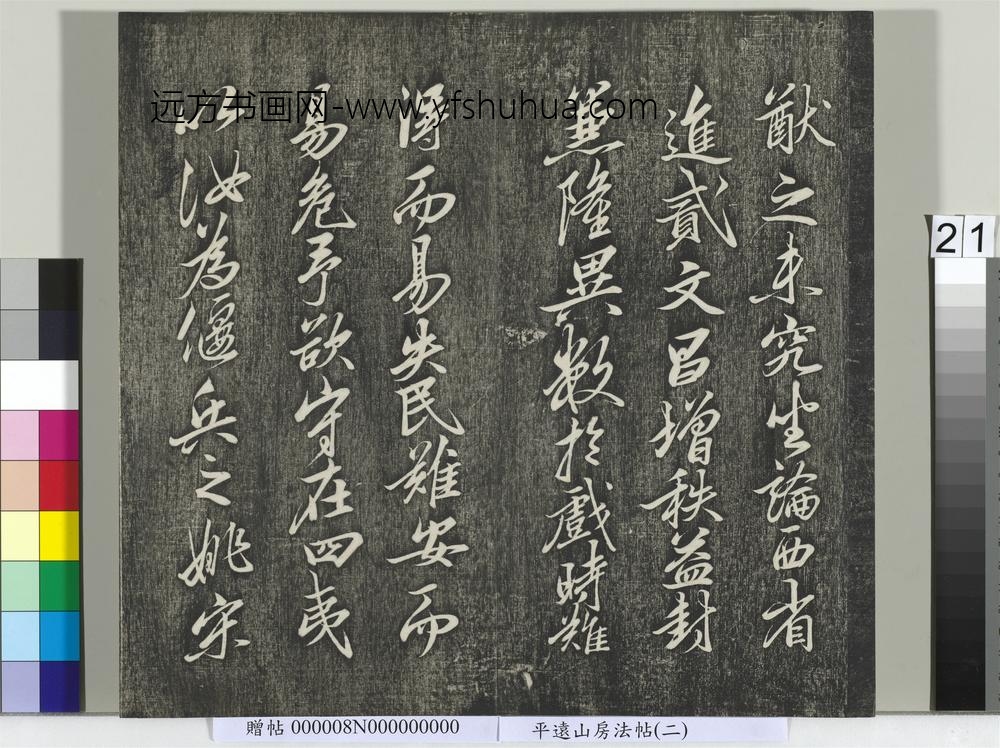 猷之未究坐論西省
進貳文昌增秩益封
兼隆異數於戲時難
得而易失民難安而
易危予欲守在四夷
以汝為偃兵之姚宋
远方书画网-www.yfshuhua.com
21
贈帖 000008N000000000
平遠山房法帖(二)